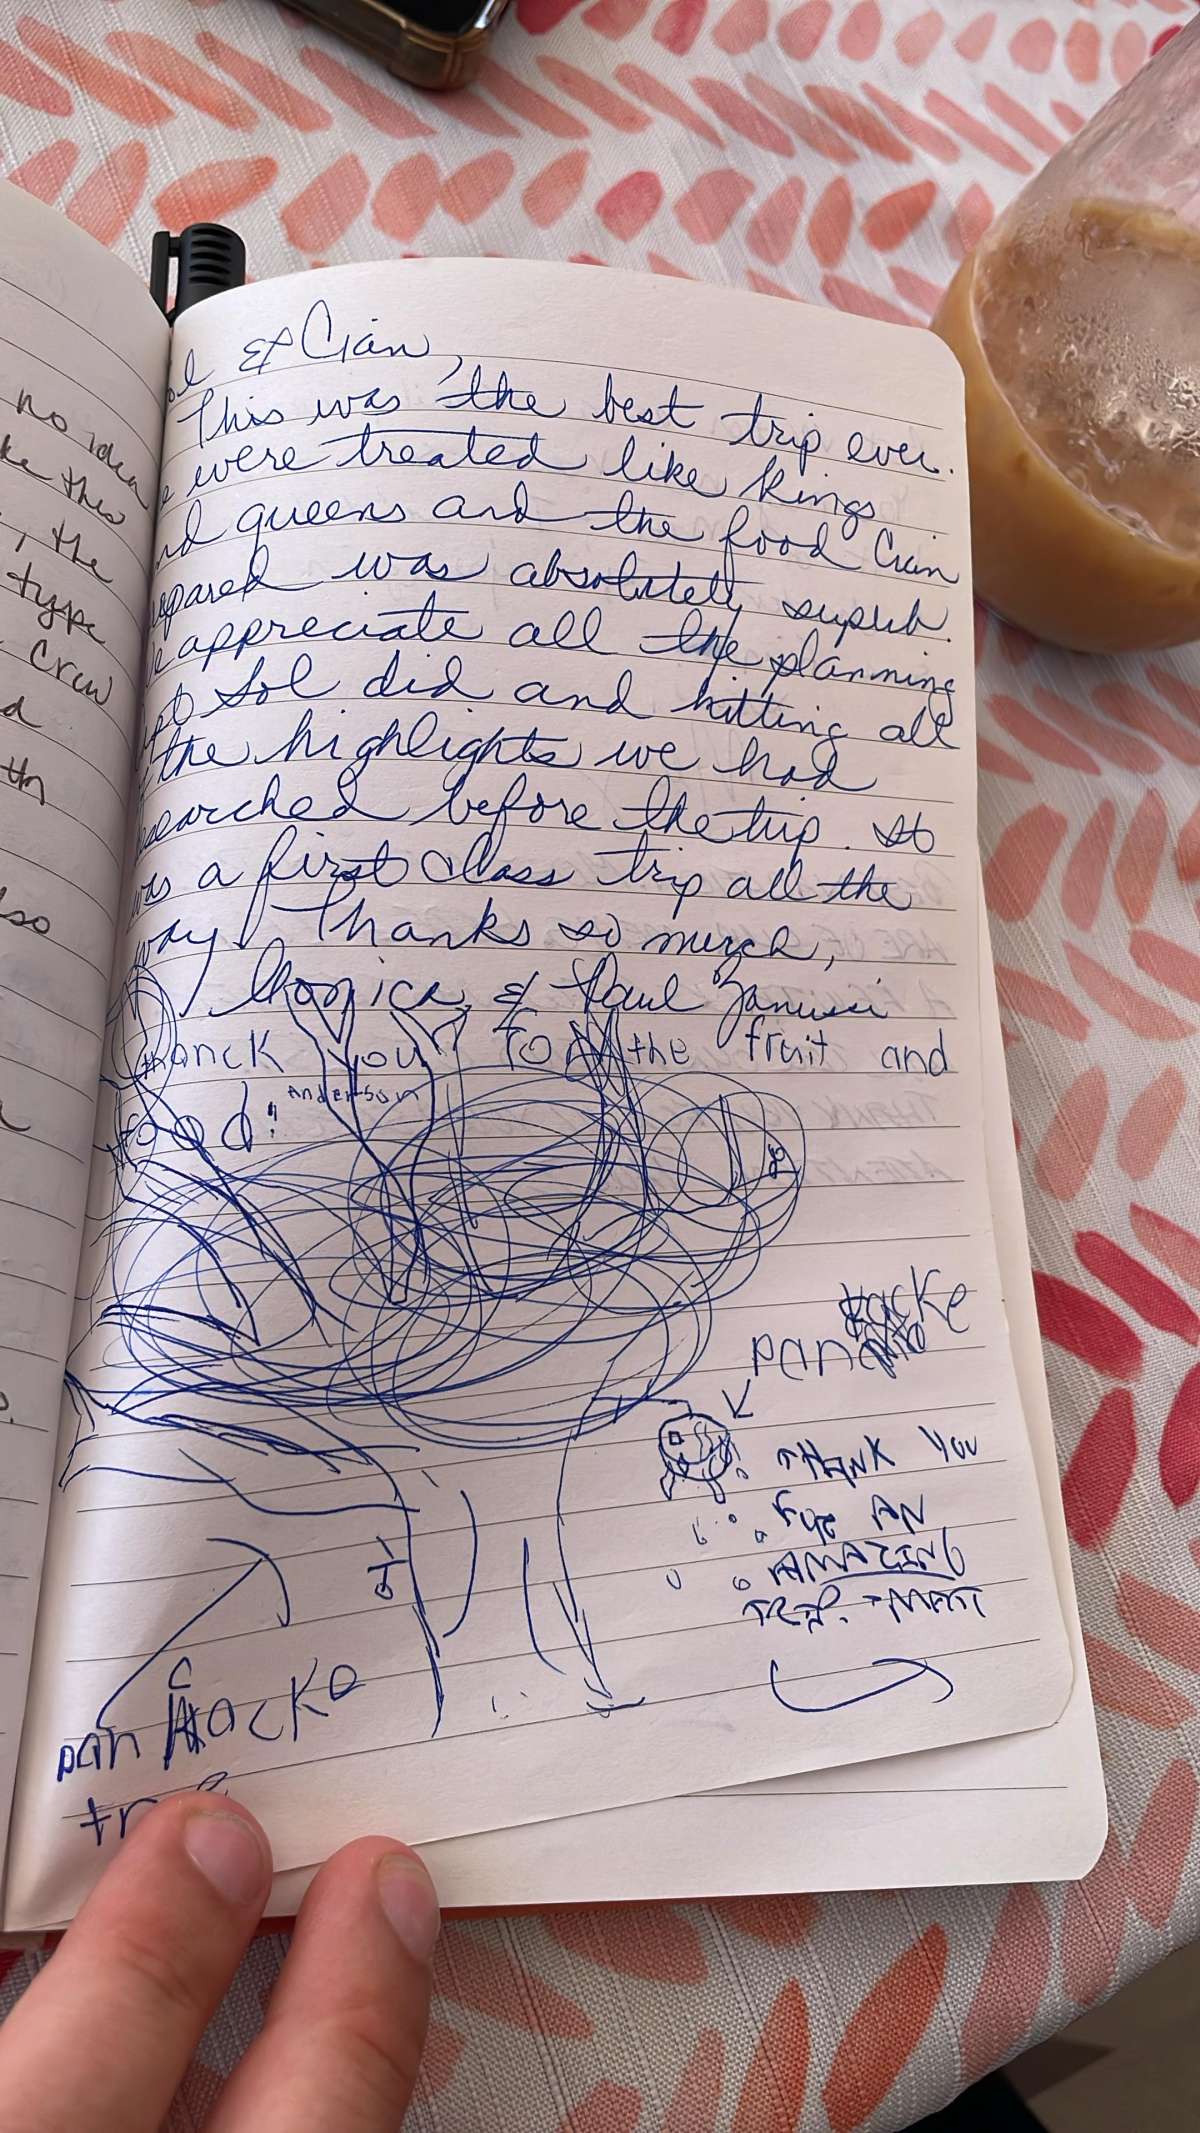 no idea
the
type
Crew
so
& Cian,
This was the best trip ever.
were treated like kings
nd queens and the food Cian
epared was absolutely superb.
e appreciate all the planning
Sol did and hitting all
the highlights we had
searched before the trip. It
was a first class trip all the
way! Thanks so much,
Monica & Paul Zanussi
thanck you for the fruit and
food!
Anderson
pan
cacke
THANK YOU
FOR AN
AMAZING
TRIP. -MATT
pan cacke